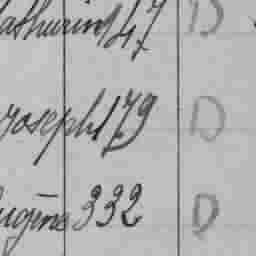 Mathurin 147 D
Joseph 179 D
Eugène 332 D